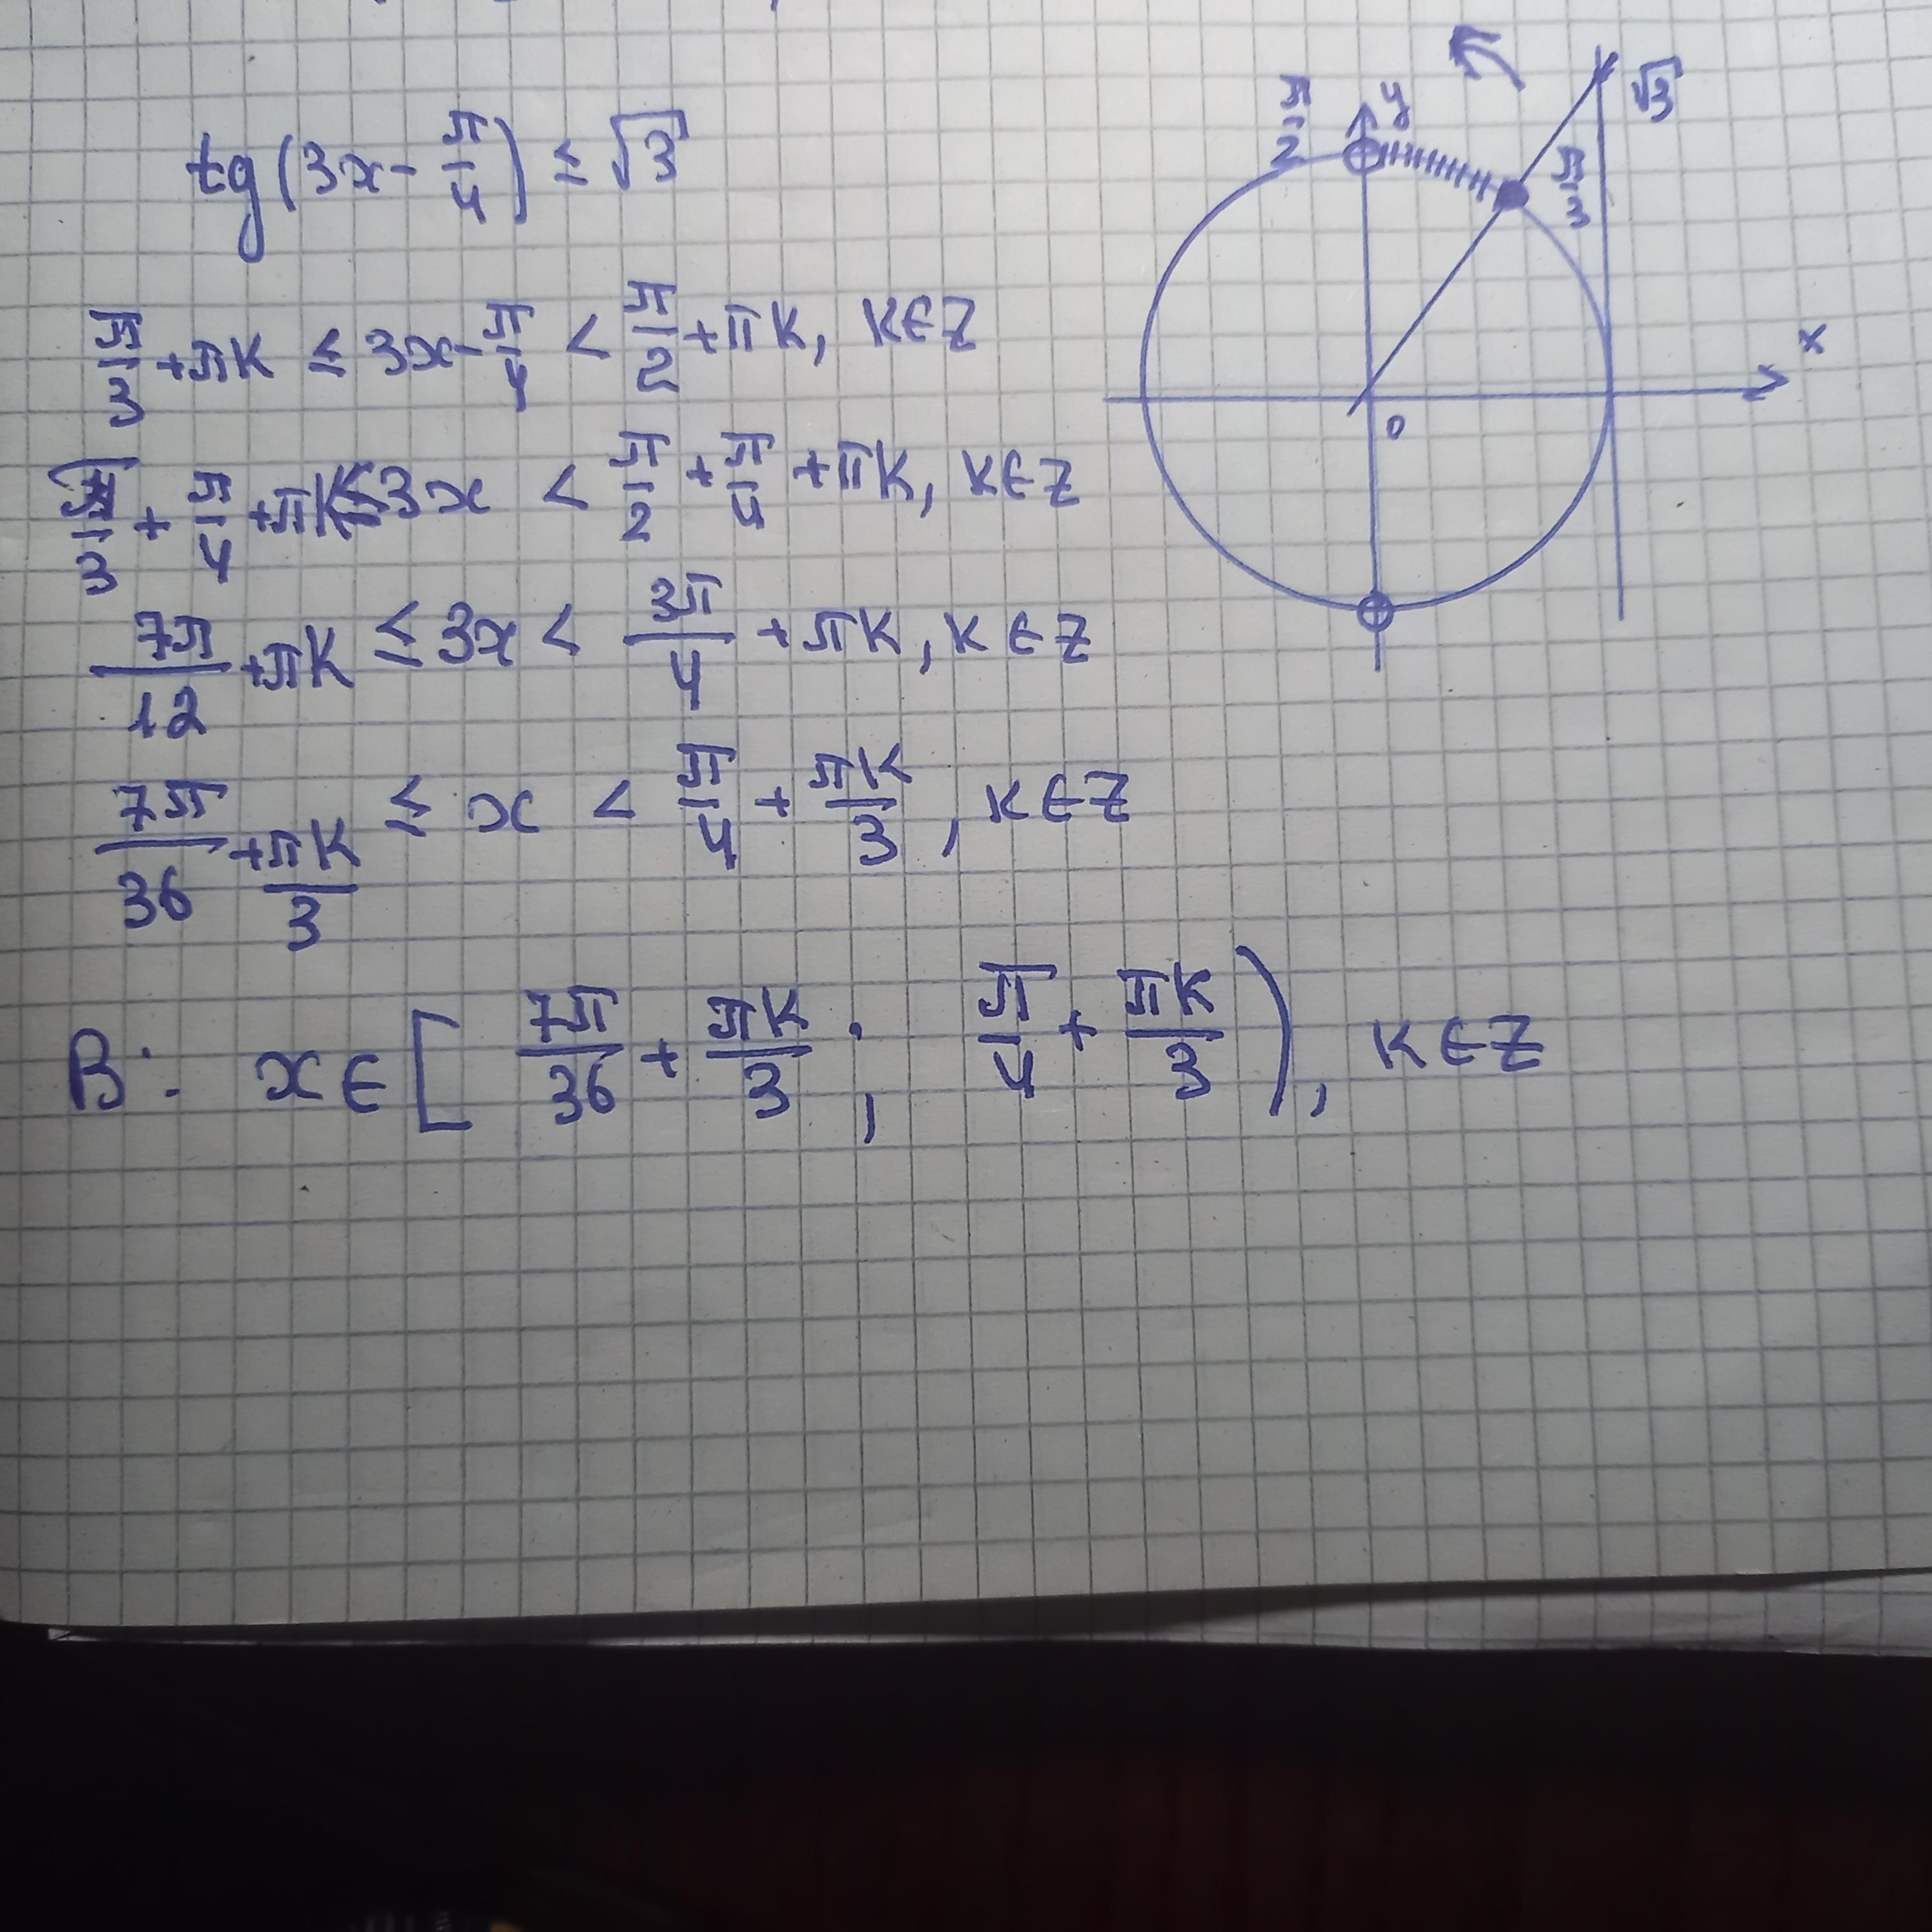 tg(3x - π/4) ≤ √3
π/3 + πk ≤ 3x - π/4 < π/2 + πk, k∈Z
π/3 + π/4 + πk ≤ 3x < π/2 + π/4 + πk, k∈Z
7π/12 + πk ≤ 3x < 3π/4 + πk, k∈Z
7π/36 + πk/3 ≤ x < π/4 + πk/3, k∈Z
В: x∈[7π/36 + πk/3; π/4 + πk/3), k∈Z
π/2
y
√3
π/3
x
0